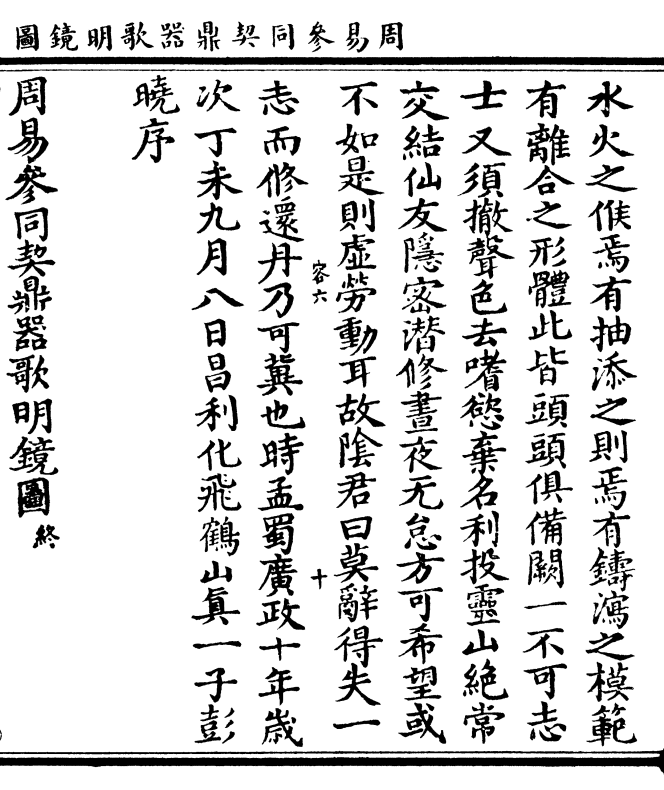 周易參同契鼎器歌明鏡圖
水火之候焉有抽添之則焉有鑄瀉之模範
有離合之形體此皆頭頭俱備闕一不可志
士又須撤聲色去嗜慾棄名利投靈山絶常
交結仙友隱密潜修晝夜无怠方可希望或
不如是則虛勞動耳故陰君曰莫辭得失一
志而修還丹乃可冀也時孟蜀廣政十年歲
容六
十
次丁未九月八日昌利化飛鶴山眞一子彭
曉序
周易參同契鼎器歌明鏡圖終